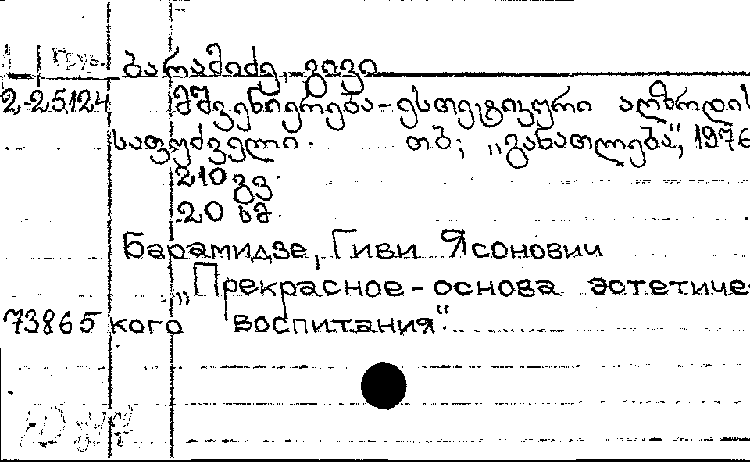 Груз. ბარამიძე, გივი
2-25124 მშვენიერება-ესთეტიკური აღზრდის
საფუძველი. თბ; „განათლება“, 1976
210 გვ
20 სმ.
Барамидзе, Гиви Ясонович
„Прекрасное-основа эстетичес
73865 кого воспитания“.